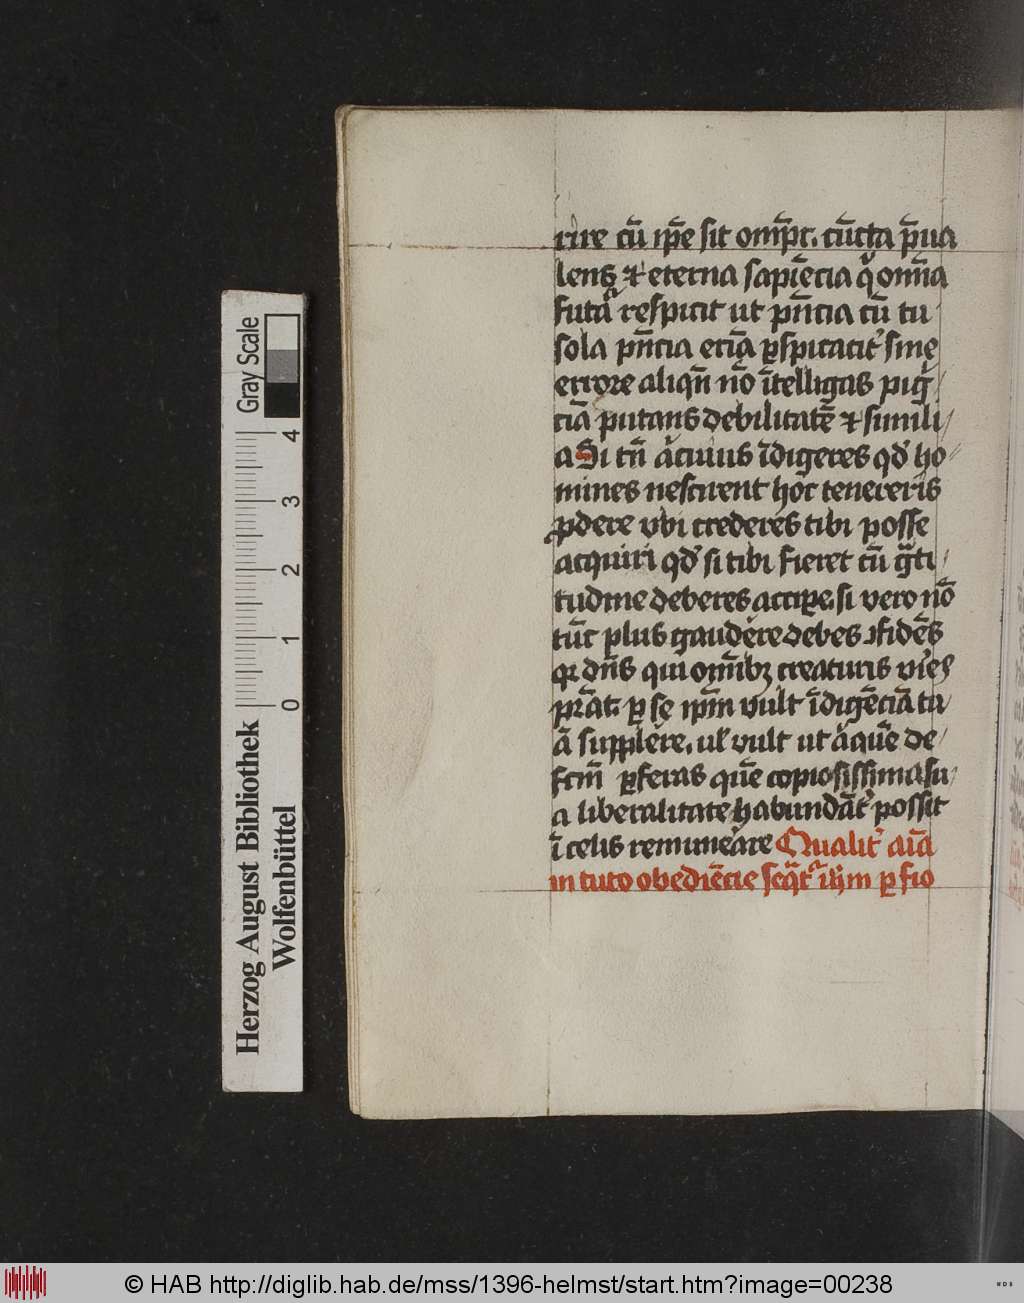 rire cū ip̄e sit om̄pt. cūcta p̄ua
lens et eterna sapiēcia q̄ om̄ia
futa respicit ut pn̄cia cū tu
sola pn̄cia eciā ꝑspicacit᾽ sine
errore aliqn̄ nō ītelligas pigͥ
ciā putans debilitatē et simili
a Si tn̄ acͥuius īdigeres qd᾽ ho
mines nescirent hoc tenereris
ꝓdere vbi crederes tibi posse
acquiri qd᾽ si tibi fieret cū gͣti
tudine deberes accipe. si vero nō
tūc plus gaudere debes ꝯfidēs
qꝛ dn̄s qui om̄ibꝫ creaturis vi̾es
prāt ꝑ se ip̄m vult īdigēciā tu
ā supplere. ul᾽ vult ut aͥquē de
fcm̄ ꝑferas quē copiosissima su
a liberalitate habundāt᾽ possit
ī celis remun̾are Qualit᾽ aīa
in tuto obediēcie seqͣt᾽ ih̄m ꝑ fio
Gray Scale
4 3 2 1 0
Herzog August Bibliothek
Wolfenbüttel
© HAB http://diglib.hab.de/mss/1396-helmst/start.htm?image=00238
WDB